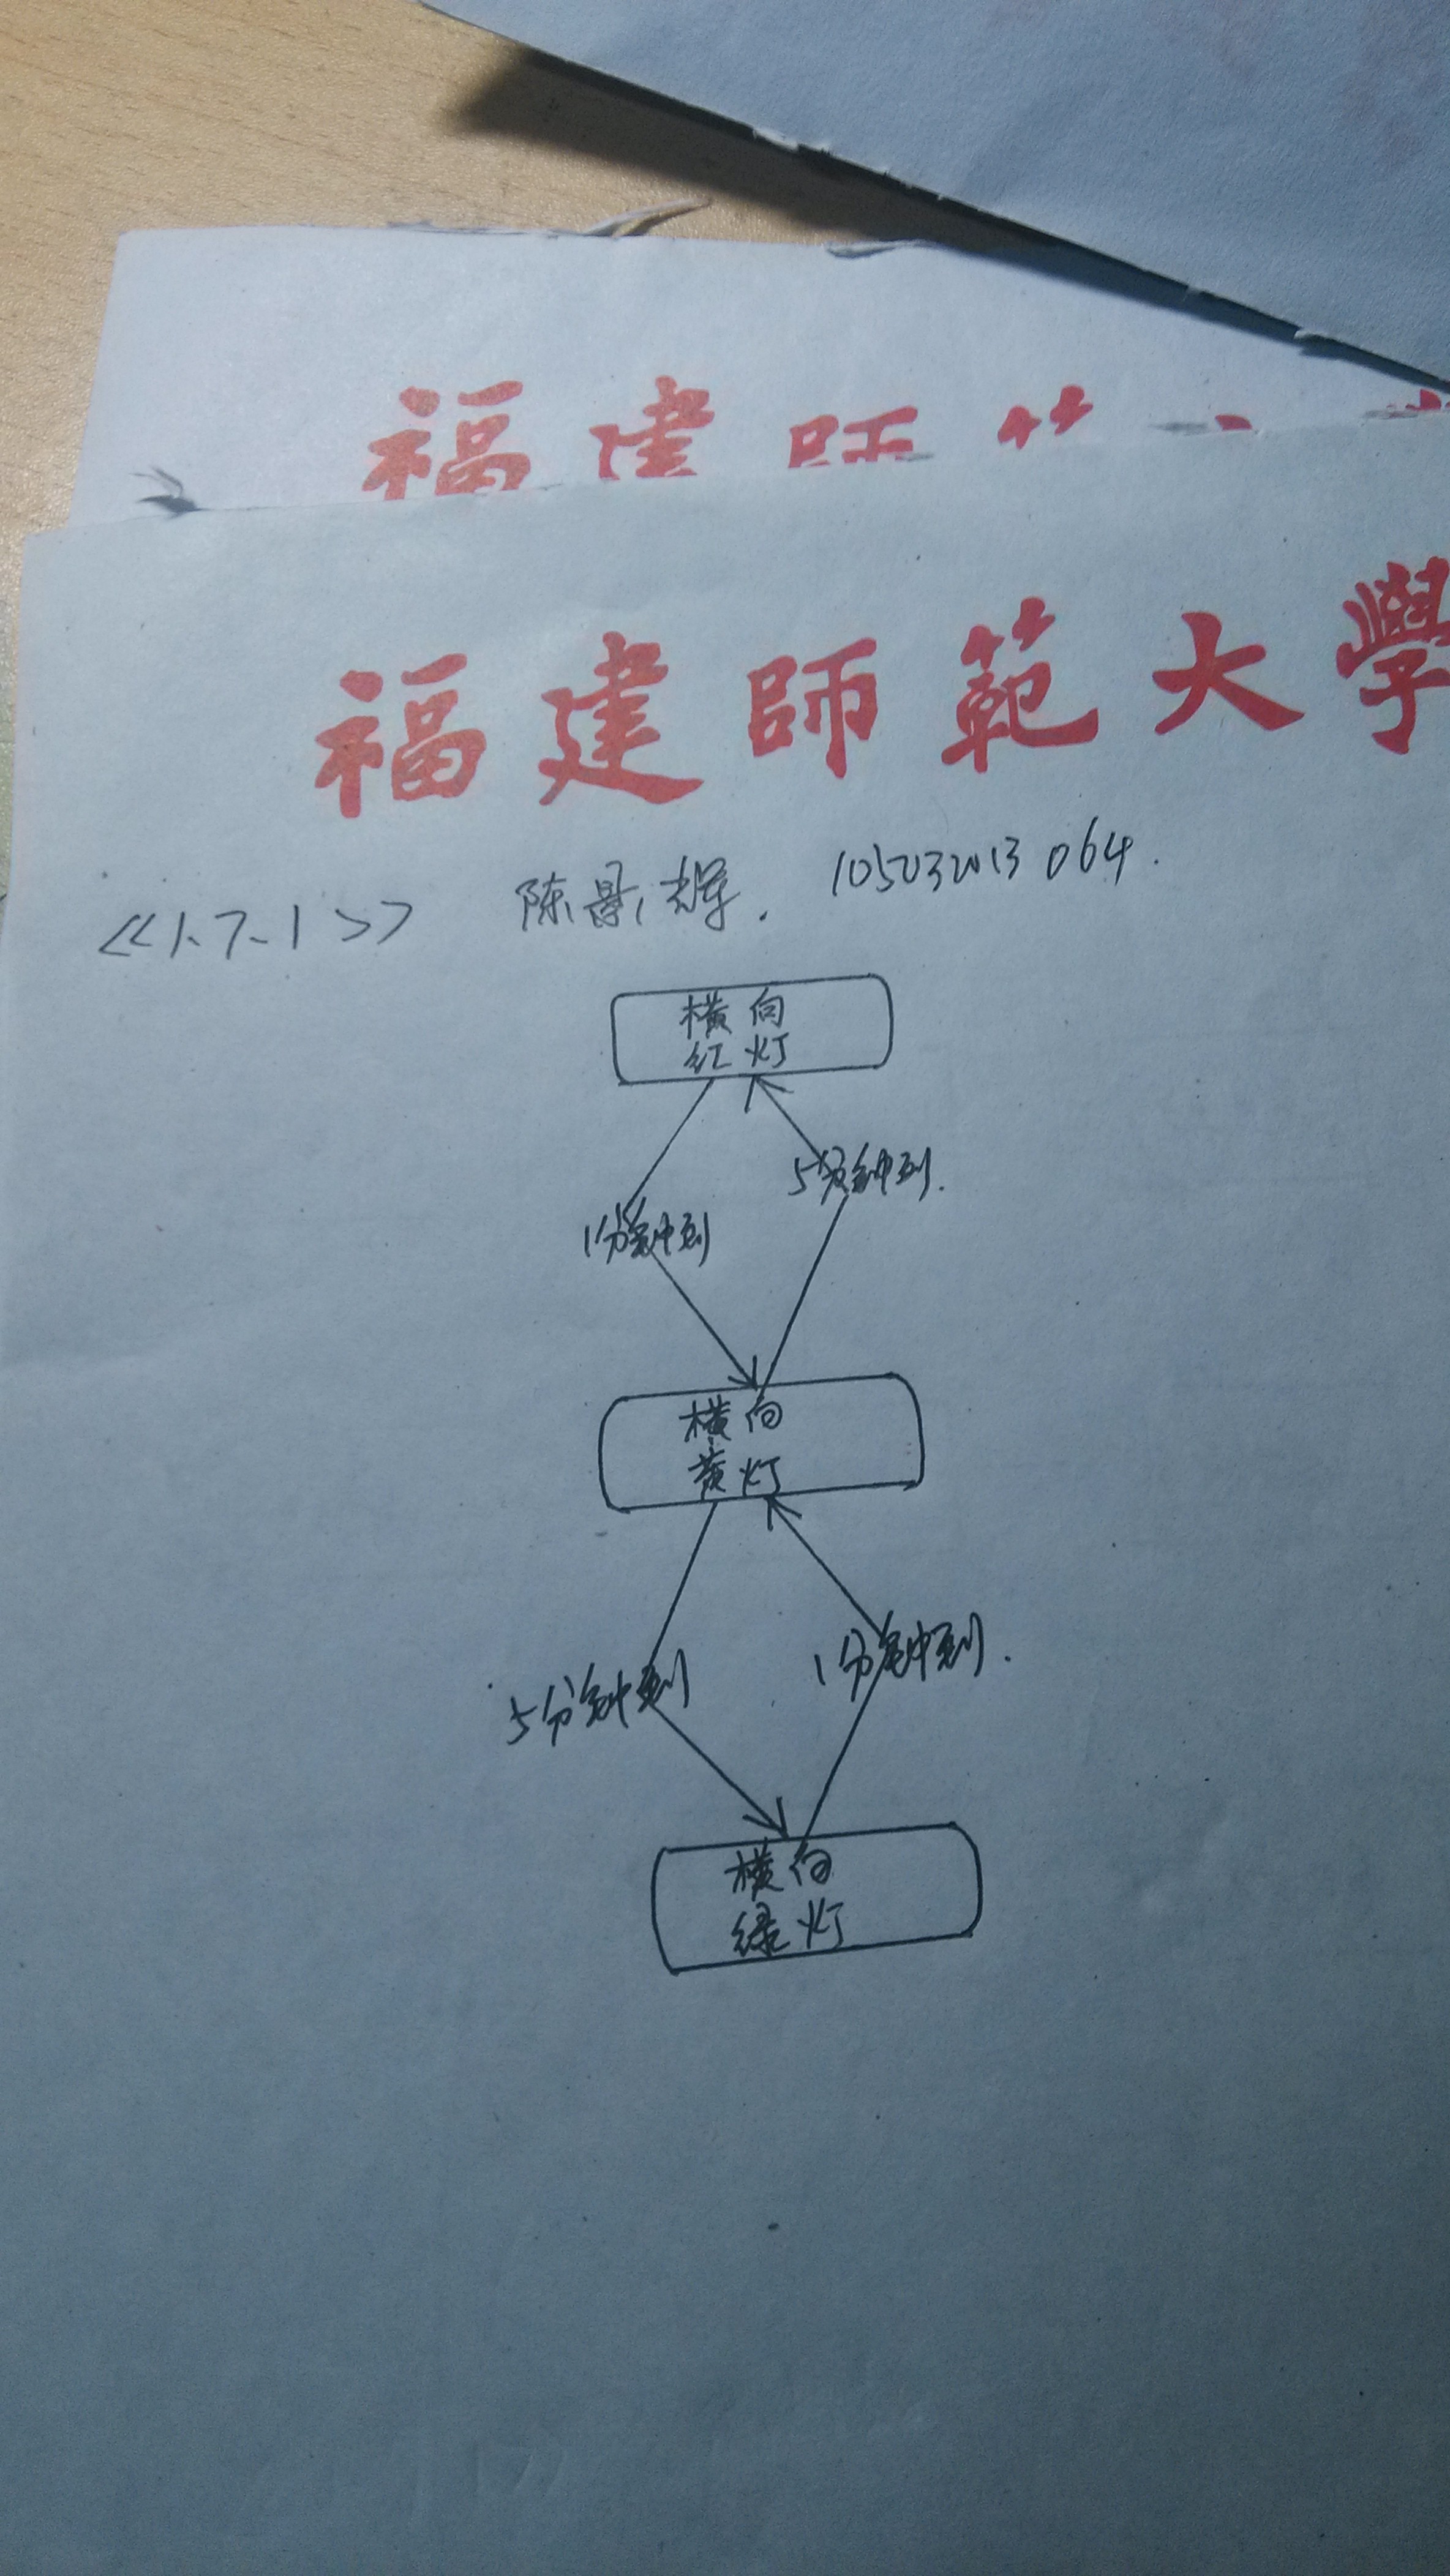 福建師
福建師範大學
<<1.7.1>> 陈景辉. 105032013064.
横向
红灯
5分钟到.
1分钟到
横向
黄灯
1分钟到.
5分钟到
横向
绿灯